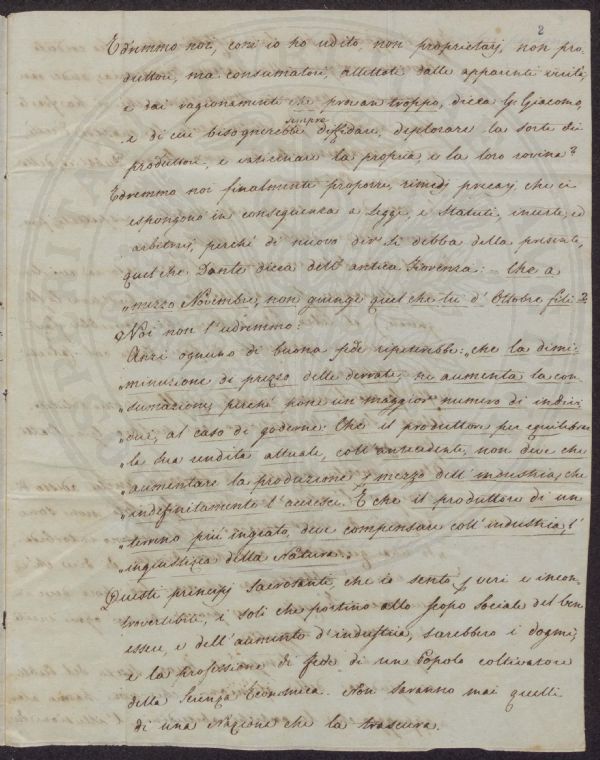 2
Udremmo noi, com'io ho udito, non proprietarj, non pro-
duttori, ma consumatori, allettati dalle apparenti virtù,
e dai ragionamenti che provan troppo, dicea
e di cui bisognerebbe sempre diffidare, deplorare la sorte dei
produttori, e vaticinare la propria, e la loro rovina?
Udremmo noi finalmente proporre rimedj precarj che ci
espongono in conseguenza a Leggi, e Statuti, incerte, ed
arbitrarj, perché di nuovo dir si debba della presente,
quel che Dante dicea dell'antica Fiorenza: Che a
„mezzo Novembre, non giunge quel che tu d'Ottobre fili?
Noi non l'udremmo:
Anzi ognuno di buona fede ripeterebbe: „che la dimi-
„minuzione di prezzo delle derrate, ne aumenta la con-
„sumazione, perché pone un maggior numero di indivi-
„dui, al caso di goderne: Che il produttore per equilibrare
„la sua rendita attuale, coll'antecedente, non deve che
„aumentare la produzione p mezzo dell'industria, che
„indefinitamente l'accresce. E che il produttore di un
„terreno più ingrato, deve compensare coll'industria, l'
„ingiustizia della Natura.
Questi principj Sacrosanti, che io sento p veri e incon-
trovertibili, i soli che portino allo scopo Sociale del ben
essere, e dell'aumento d'industria, sarebbero i dogmi,
e la professione di fede di un Popolo coltivatore
della Scienza Economica. Non saranno mai quelli
di una Nazione che la trascura.